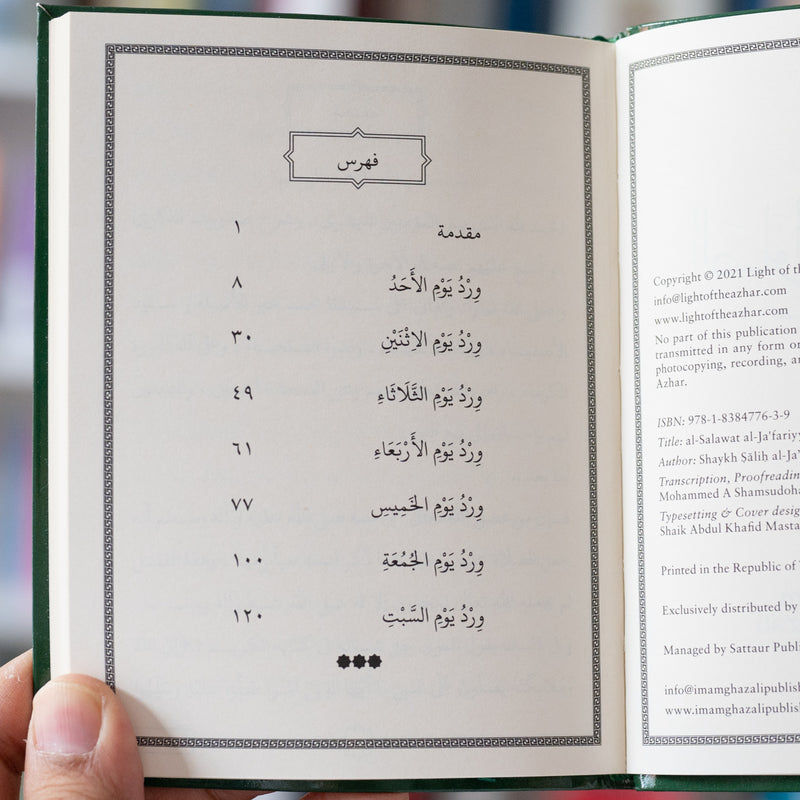 فهرس
مقدمة ١
وِرْدُ يَوْمِ الأَحَدُ ٨
وِرْدُ يَوْمِ الاِثْنَيْنِ ٣٠
وِرْدُ يَوْمِ الثَّلَاثَاءِ ٤٩
وِرْدُ يَوْمِ الأَرْبَعَاءِ ٦١
وِرْدُ يَوْمِ الخَمِيسِ ٧٧
وِرْدُ يَوْمِ الجُمُعَةِ ١٠٠
وِرْدُ يَوْمِ السَّبْتِ ١٢٠
Copyright © 2021 Light of
info@lightoftheazhar.com
www.lightoftheazhar.com
No part of this publication
transmitted in any form
photocopying, recording,
Azhar.
ISBN: 978-1-8384776-3-9
Title: al-Salawat
Author: Shaykh Ṣāliḥ
Transcription,
Mohammed A
Typesetting & Cover
Shaik Abdul Khafid
Printed in the Republic of
Exclusively distributed by
Managed by Sattaur